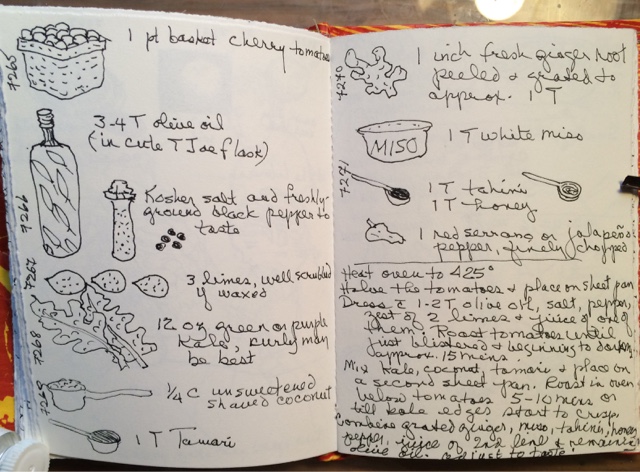 7265
1 pt basket cherry tomatoes
7266
3-4 T olive oil
(in cute TJoe flask)
Kosher salt and freshly-
ground black pepper to
taste
7267
3 limes, well scrubbed
if waxed
7268
12 oz green or purple
Kale, curly may
be best
7269
1/4 c unsweetened
shaved coconut
1 T Tamari
7270
1 inch fresh ginger root
peeled & grated to
approx. 1 T
MISO
1 T white miso
7271
1 T tahini
1 T honey
1 red serrano or jalapeño
pepper, finely chopped
Heat oven to 425°
Halve the tomatoes & place on sheet pan
Dress c 1-2 T olive oil, salt, pepper,
zest of 2 limes & juice of one of
them. Roast tomatoes until
just blistered & beginning to
approx. 15 mins.
Mix kale, coconut, tamari & place on
a second sheet pan. Roast in oven
below tomatoes 5-10 mins or
till kale edges start to crisp.
Combine grated ginger, miso, tahini, honey
pepper, juice of 2nd & remaining
olive oil. adjust to taste.